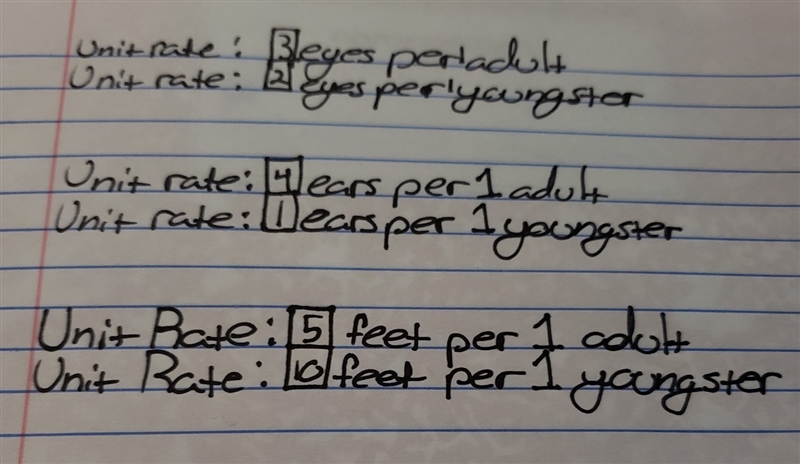 Unit rate: 3 eyes per 1 adult
Unit rate: 2 eyes per 1 youngster
Unit rate: 4 ears per 1 adult
Unit rate: 1 ears per 1 youngster
Unit Rate: 5 feet per 1 adult
Unit Rate: 10 feet per 1 youngster